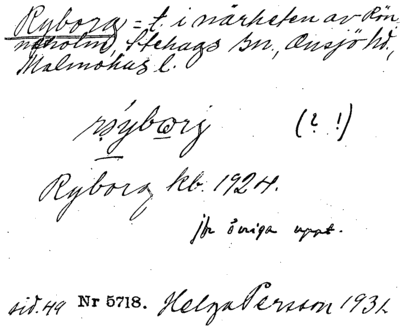 Ryborg = t. i närheten av Rön-
neholm, Stehags sn., Onsjö hd.,
Malmöhus l.
rs̀yborj (? !)
Ryborg kb. 1924.
jfr övriga uppt.
sid. 49 Nr 5718. Helga Persson 1931